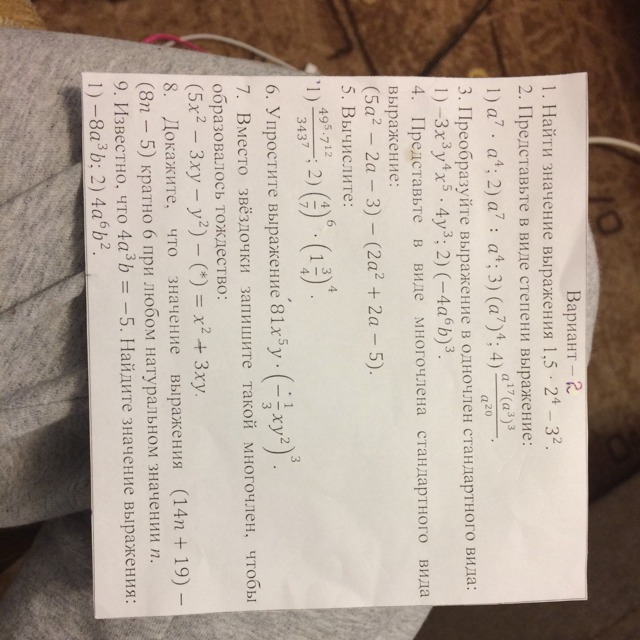 Вариант – 2
1. Найти значение выражения 1,5 · 2⁴ – 3².
2. Представьте в виде степени выражение:
1) a⁷ · a⁴; 2) a⁷ : a⁴; 3) (a⁷)⁴; 4) a¹⁷(a³)³/a²⁰.
3. Преобразуйте выражение в одночлен стандартного вида:
1) –3x³y⁴x⁵ · 4y³; 2) (–4a⁶b)³.
4. Представьте в виде многочлена стандартного вида
выражение:
(5a² – 2a – 3) – (2a² + 2a – 5).
5. Вычислите:
1) 49⁵·7¹²/343⁷; 2) (4/7)⁶ · (1 3/4)⁴.
6. Упростите выражение 81x⁵y · (– 1/3 xy²)³.
7. Вместо звёздочки запишите такой многочлен, чтобы
образовалось тождество:
(5x² – 3xy – y²) – (*) = x² + 3xy.
8. Докажите, что значение выражения (14n + 19) –
(8n – 5) кратно 6 при любом натуральном значении n.
9. Известно, что 4a³b = –5. Найдите значение выражения:
1) –8a³b; 2) 4a⁶b².